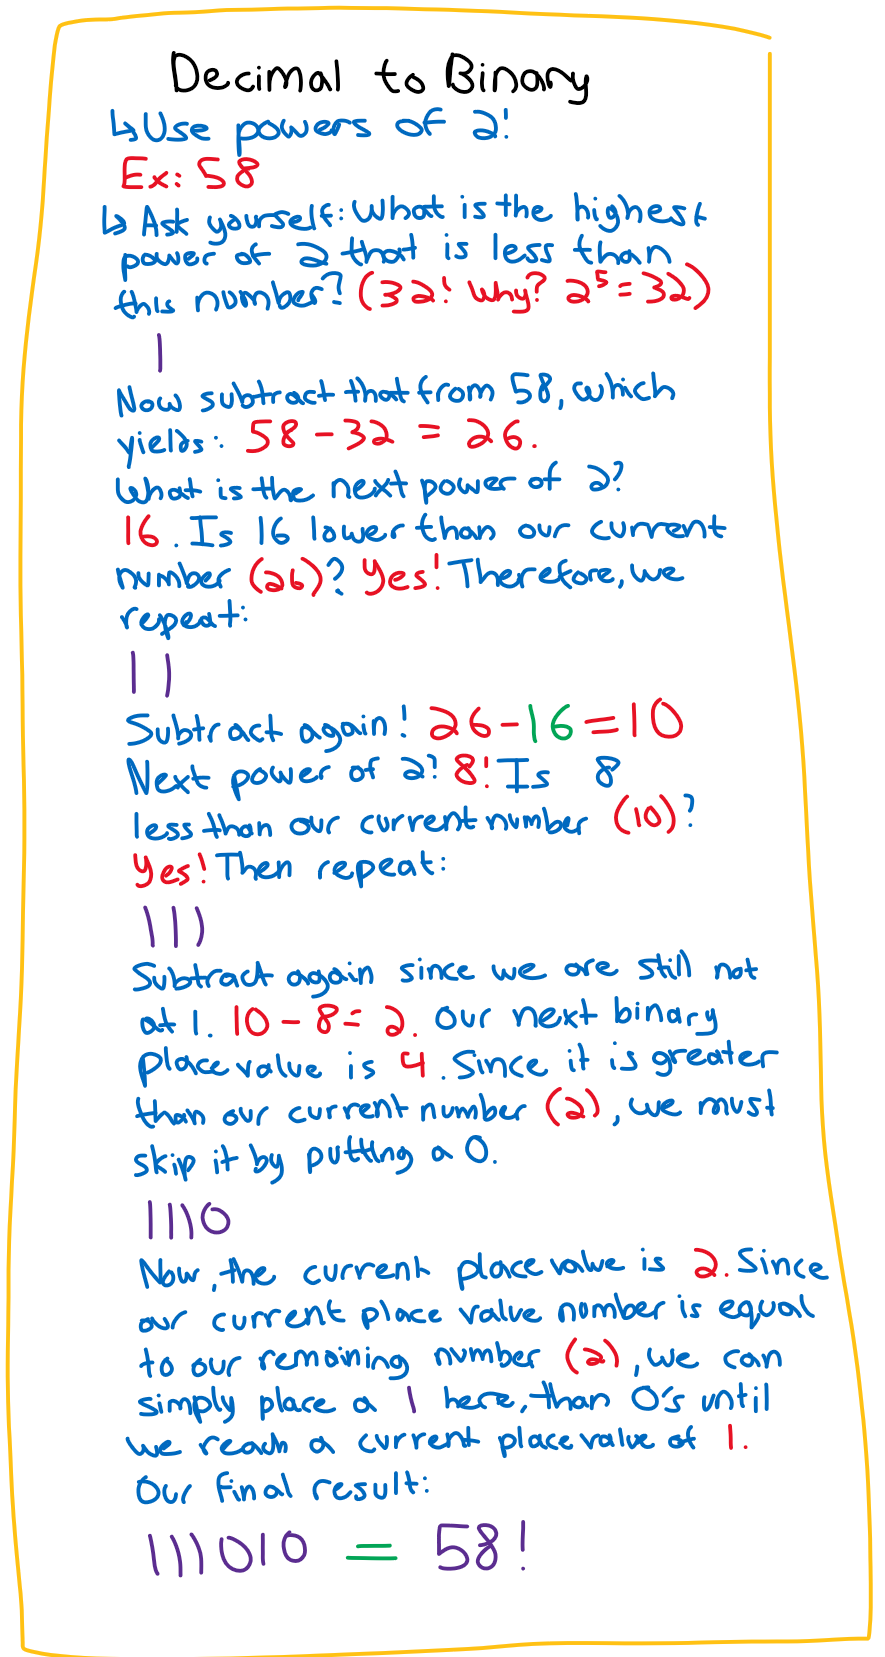 Decimal to Binary
↳Use powers of 2!
Ex: 58
↳ Ask yourself: What is the highest
power of 2 that is less than
this number? (32! Why? 2⁵ = 32)
1
Now subtract that from 58, which
yields: 58 - 32 = 26.
What is the next power of 2?
16. Is 16 lower than our current
number (26)? Yes! Therefore, we
repeat:
11
Subtract again! 26-16=10
Next power of 2? 8! Is 8
less than our current number (10)?
Yes! Then repeat:
111
Subtract again since we are still not
at 1. 10 - 8 = 2. Our next binary
place value is 4. Since it is greater
than our current number (2), we must
skip it by putting a 0.
1110
Now, the current place value is 2. Since
our current place value number is equal
to our remaining number (2), we can
simply place a 1 here, than 0's until
we reach a current place value of 1.
Our final result:
111010 = 58!